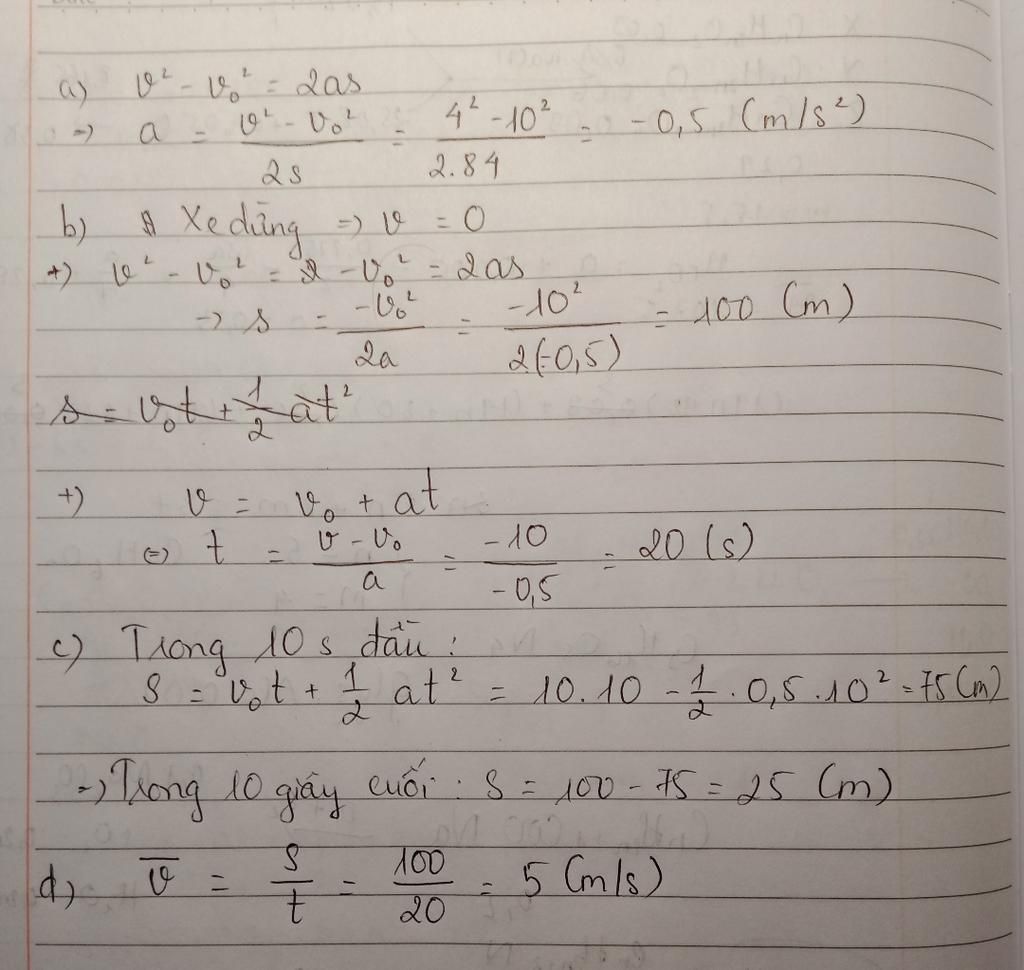 a) v² - v₀² = 2as
=> a = (v² - v₀²)/2s = (4² - 10²)/2.84 = -0,5 (m/s²)
b) Xe dừng => v = 0
+) v² - v₀² = - v₀² = 2as
-> s = -v₀²/2a = -10²/2(-0,5) = 100 (m)
s = v₀t + 1/2 at²
+) v = v₀ + at
(=) t = (v - v₀)/a = -10/-0,5 = 20 (s)
c) Trong 10 s đầu :
S = v₀t + 1/2 at² = 10.10 - 1/2 . 0,5 . 10² = 75 (m)
=> Trong 10 giây cuối : S = 100 - 75 = 25 (m)
d) v̅ = S/t = 100/20 = 5 (m/s)